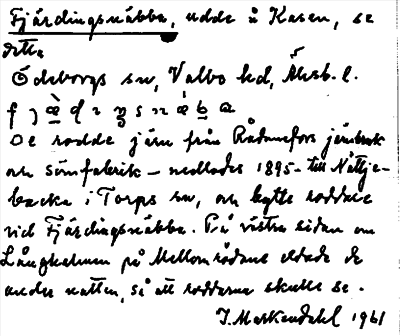 Fjärdingsnäbba, udde å Kasen, se
detta
Ödeborgs sn, Valbo hd, Älvsb. l.
De rodde järn från Rådanefors järnbruk
och sömfabrik – nedlades 1895 – till Nättje-
backa i Torps sn, och bytte roddare
vid Fjärdingsnäbba. På västra sidan om
Långhalmen på Mellområdane eldade de
under natten, så att roddarna skulle se.
J. Markendahl 1961